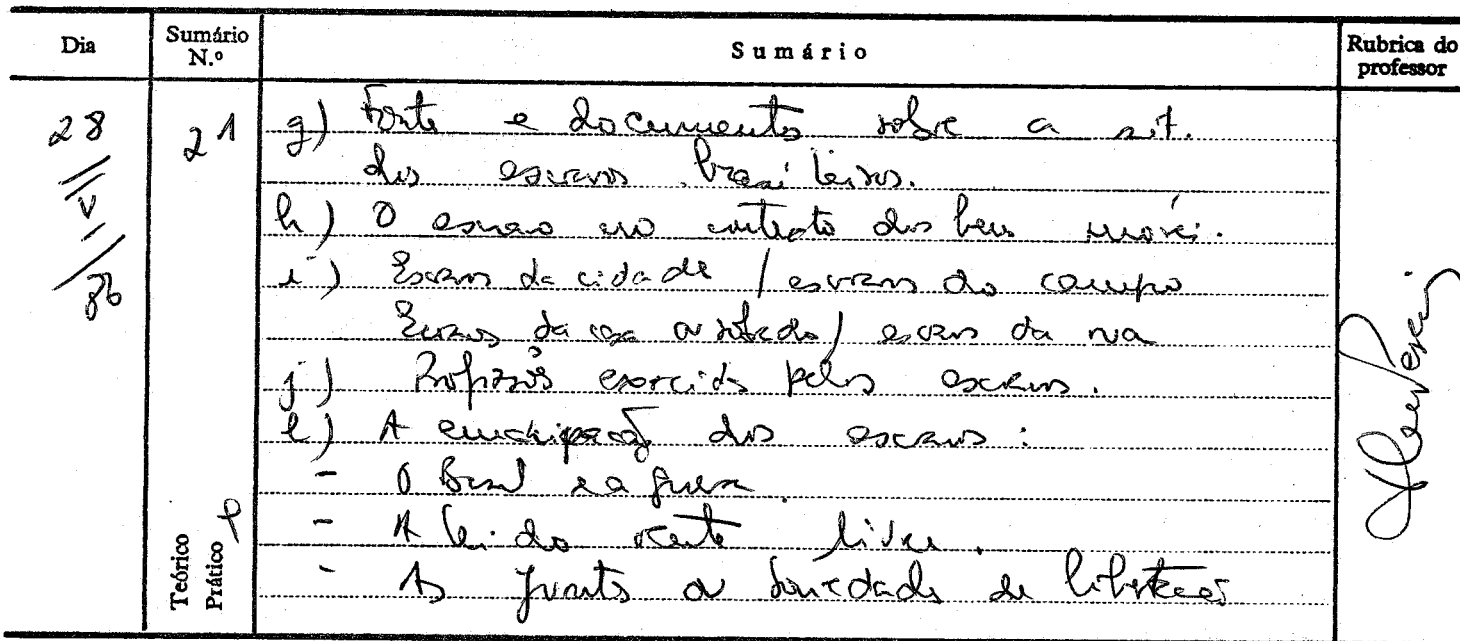 Dia
Sumário N.º
Sumário
Rubrica do professor
28
V
86
21
g) Fontes e documentos sobre a sit.
dos escravos brasileiros.
h) O escravo no contexto dos bens móveis.
i) Escravos da cidade / escravos do campo
Escravos da casa ou sobrado / escravos da rua
j) Profissões exercidas pelos escravos.
l) A emancipação dos escravos:
- O Brasil e a guerra.
- A lei do ventre livre.
- As juntas ou sociedades de libertação
Teórico
Prático